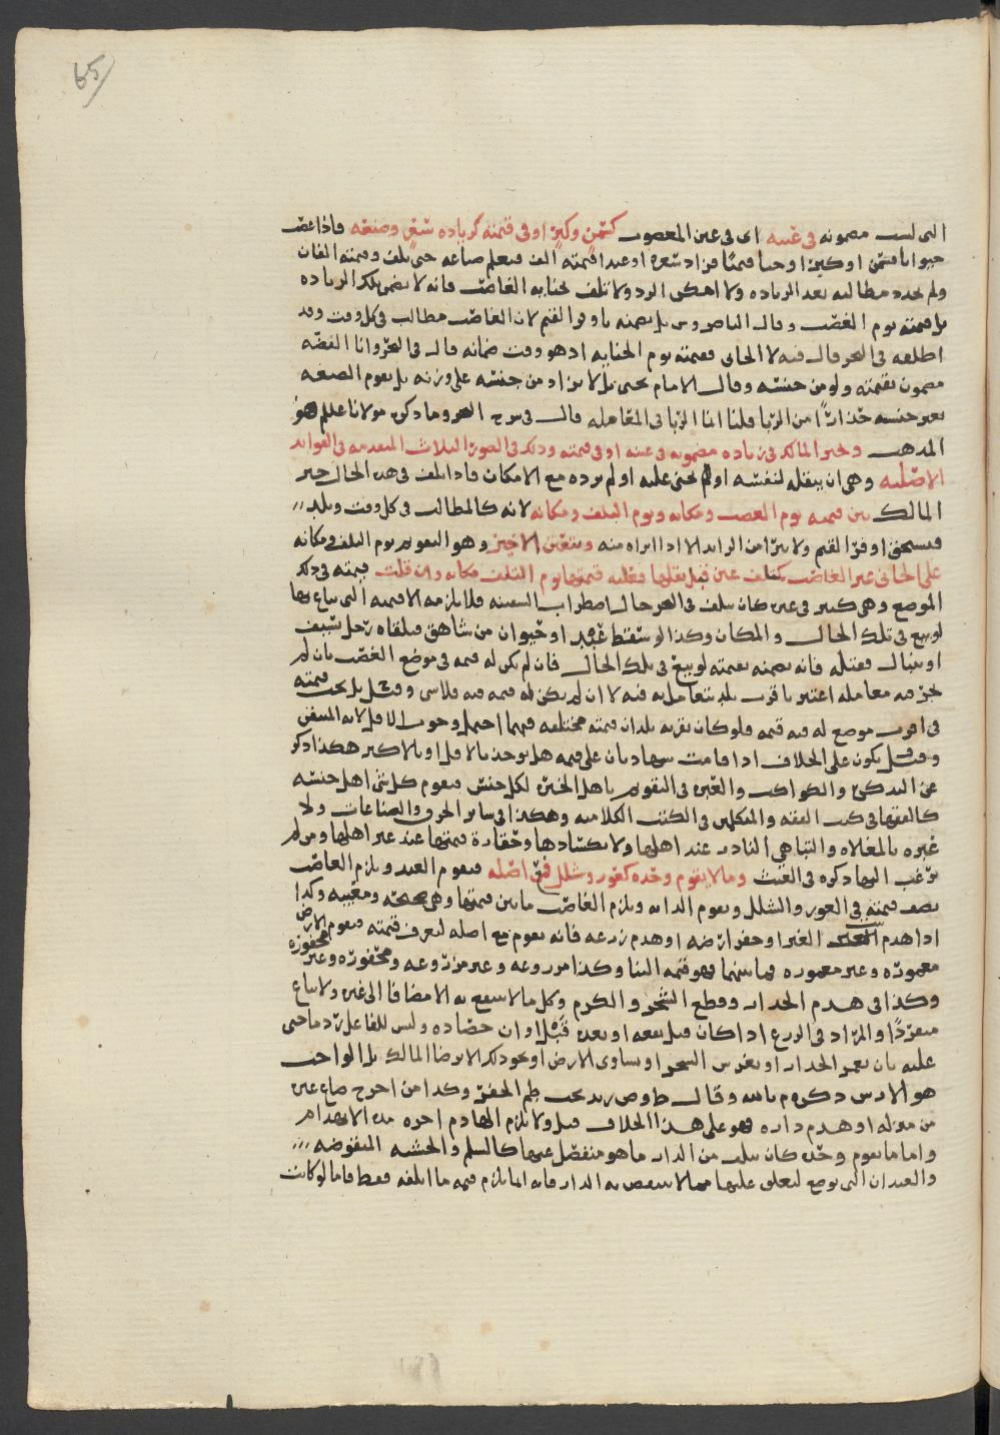 65
التي ليست مضمونه في عينه اى في عين المغصوب كسمن وكبر او في قيمته كزياده شعر وصنعه فاذا غصب
حيوانا فسمن او كبر او حبا قيمته الف فتعلم صناعه حتى تلف وقيمته الفان
ولم تجدد مطالبه بعد الزياده ولا امكن الرد ولا تلف بجنايه الغاصب فانه لا يضمن تلك الزياده
بل قيمته يوم الغصب وقال الناصر وس بل يضمنه باوفر القيم لان الغاصب مطالب في كل وقت وقد
اطلقه في البحر قال فيه لا الجاني فقيمته يوم الجنايه اذ هو وقت ضمانه قال في البحر وانا الفضه
مضمون بقيمته ولو من جنسه وقال الامام يحيى بل لا يزاد من جنسه على وزنه بل يقوم الصنعه
بغير جنسه حذارًا من الربا قلنا انما الربا في المعامله قال في شرح البحر وما ذكره مولانا عللم هو
المذهب ويخير المالك في زياده مضمونه في عينه او في قيمته وذلك في الصور الثلاث المتقدمه في الفوائد
الاصليه وهي ان ينقله لنفسه او جنى عليه او لم يرده مع الامكان فاذا تلف في هذه الحال خير
المالك بين قيمته يوم الغصب ومكانه ويوم التلف ومكانه لانه كالمطالب في كل وقت وبلد
فيستحق اوفر القيم ولا يبرا من الزائد الا اذا ابراه منه ويتعين الاخير وهو التقويم يوم التلف ومكانه
على الجاني غير الغاصب كمتلف عين قبل نقلها فعليه قيمتها يوم التلف مكانه وان قلت قيمته في ذلك
الموضع وهي كثير في غيره كان يتلف في البحر حال اضطراب السفينه فلا يلزمه الا قيمته التي يباع بها
لو بيع في تلك الحال والمكان وكذا لو سقط عبد او حيوان من شاهق فتلقاه رجل بسيف
او بنبال فقتله فانه يضمنه بقيمته لو بيع في تلك الحال فان لم يكن له قيمه في موضع الغصب بان لم
تجر فيه معامله اعتبر باقرب بلد يتعامل به فيه لا ان لم يكن له قيمه فيه فلا شي وقيل بل تجب قيمته
في اقرب موضع له فيه قيمه فلو كان بقربه بلدان قيمته مختلفه فيهما احتمل وجوب الاقل لانه المتيقن
وقيل يكون على الخلاف اذا قامت شهادتان على قيمه هل يوخذ بالاقل او بالاكثر هكذا ذكر
عن التذكره والكواكب والعبره في التقويم باهل الخبره لكل جنس فيقوم كل شي اهل جنسه
كالفقها في كتب الفقه والمتكلمين في الكتب الكلاميه وهكذا في سائر الحرف والصناعات ولا
عبره بالمغلاه والتباهي النادر عند اهلها ولا بكسادها وحقارة قيمتها عند غير اهلها ومن لم
يرغب اليها ذكره في الغيث وما لا يقوم وحده كعور وشلل فمع اصله فيقوم العبد ويلزم الغاصب
نصف قيمته في العور والشلل ويقوم الدابه ويلزم الغاصب ما بين قيمتها وهي صحيحه ومعيبه وكذا
اذا هدم الغير او حفر ارضه او هدم زرعه فانه يقوم مع اصله ليعرف قيمته فيقوم الارض
معموره وغير معموره فما بينهما فهو قيمه البنا وكذا مزروعه وغير مزروعه ومحفوره وغير محفوره
وكذا في هدم الجدار وقطع الشجر والكرم وكل ما لا ينتفع به الا مضافا الى غيره ولا يباع
منفردًا والمراد في الزرع اذا كان قبل نفعه او بعده قبل اوان حصاده وليس للفاعل رد ما جنى
عليه بان يعمر الجدار او يغرس الشجر او يساوى الارض او نحو ذلك الا برضا المالك بل الواجب
هو الارش ذكره م بالله وقال ط وص ريد يجب طم الحفر وكذا من اخرج صاع غيره
من منزله او هدم داره فهو على هذا الخلاف قيل ولا يلزم الهادم اجره مده الانهدام
واما ما يقوم وحده كان يتلف من الدار ما هو منفصل عنها كالسلم والخشبه المنقوضه
والعيدان التي توضع ليعلق عليها مما لا ينقص به الدار فانه انما يلزم قيمه ما اتلفه فقط فاما لو كانت